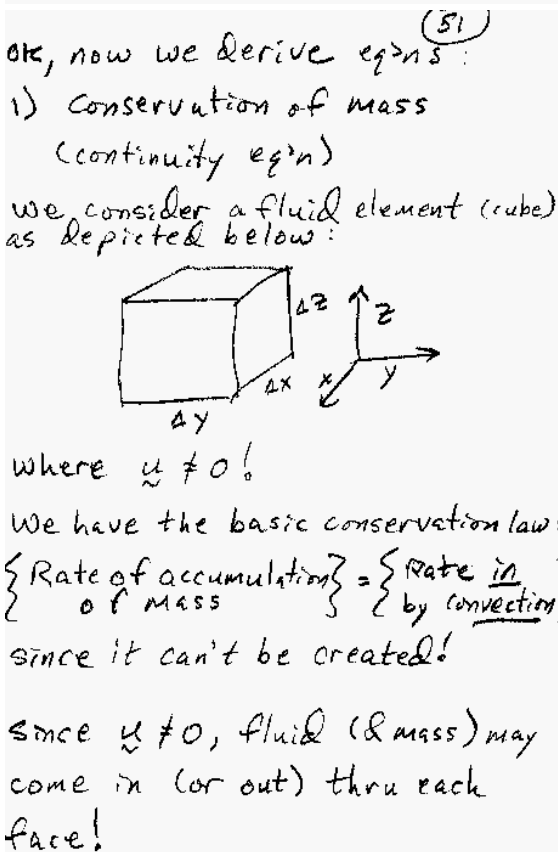 51
OK, now we derive eq'ns:
1) Conservation of mass
(continuity eq'n)
we consider a fluid element (cube)
as depicted below:
Δz z
Δx x y
Δy
where u ≠ 0!
We have the basic conservation law:
{Rate of accumulation} = {Rate in
of mass by convection
since it can't be created!
Since u ≠ 0, fluid (& mass) may
come in (or out) thru each
face!